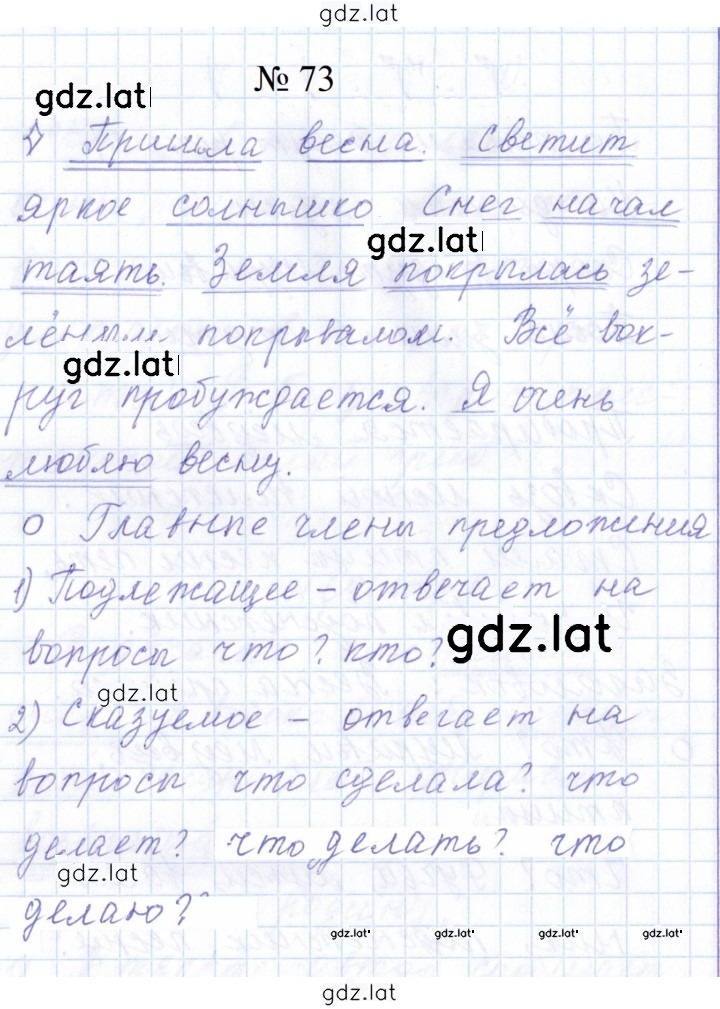 gdz.lat
№ 73
gdz.lat
Пришла весна. Светит
яркое солнышко. Снег начал
gdz.lat
таять. Земля покрылась зе-
лёным покрывалом. Всё вок-
gdz.lat
руг пробуждается. Я очень
люблю весну.
О Главные члены предложения
1) Подлежащее – отвечает на
вопросы что? кто?
gdz.lat
gdz.lat
2) Сказуемое – отвечает на
вопросы что сделала? что
делает? что делать? что
gdz.lat
делаю?
gdz.lat gdz.lat gdz.lat gdz.lat
gdz.lat